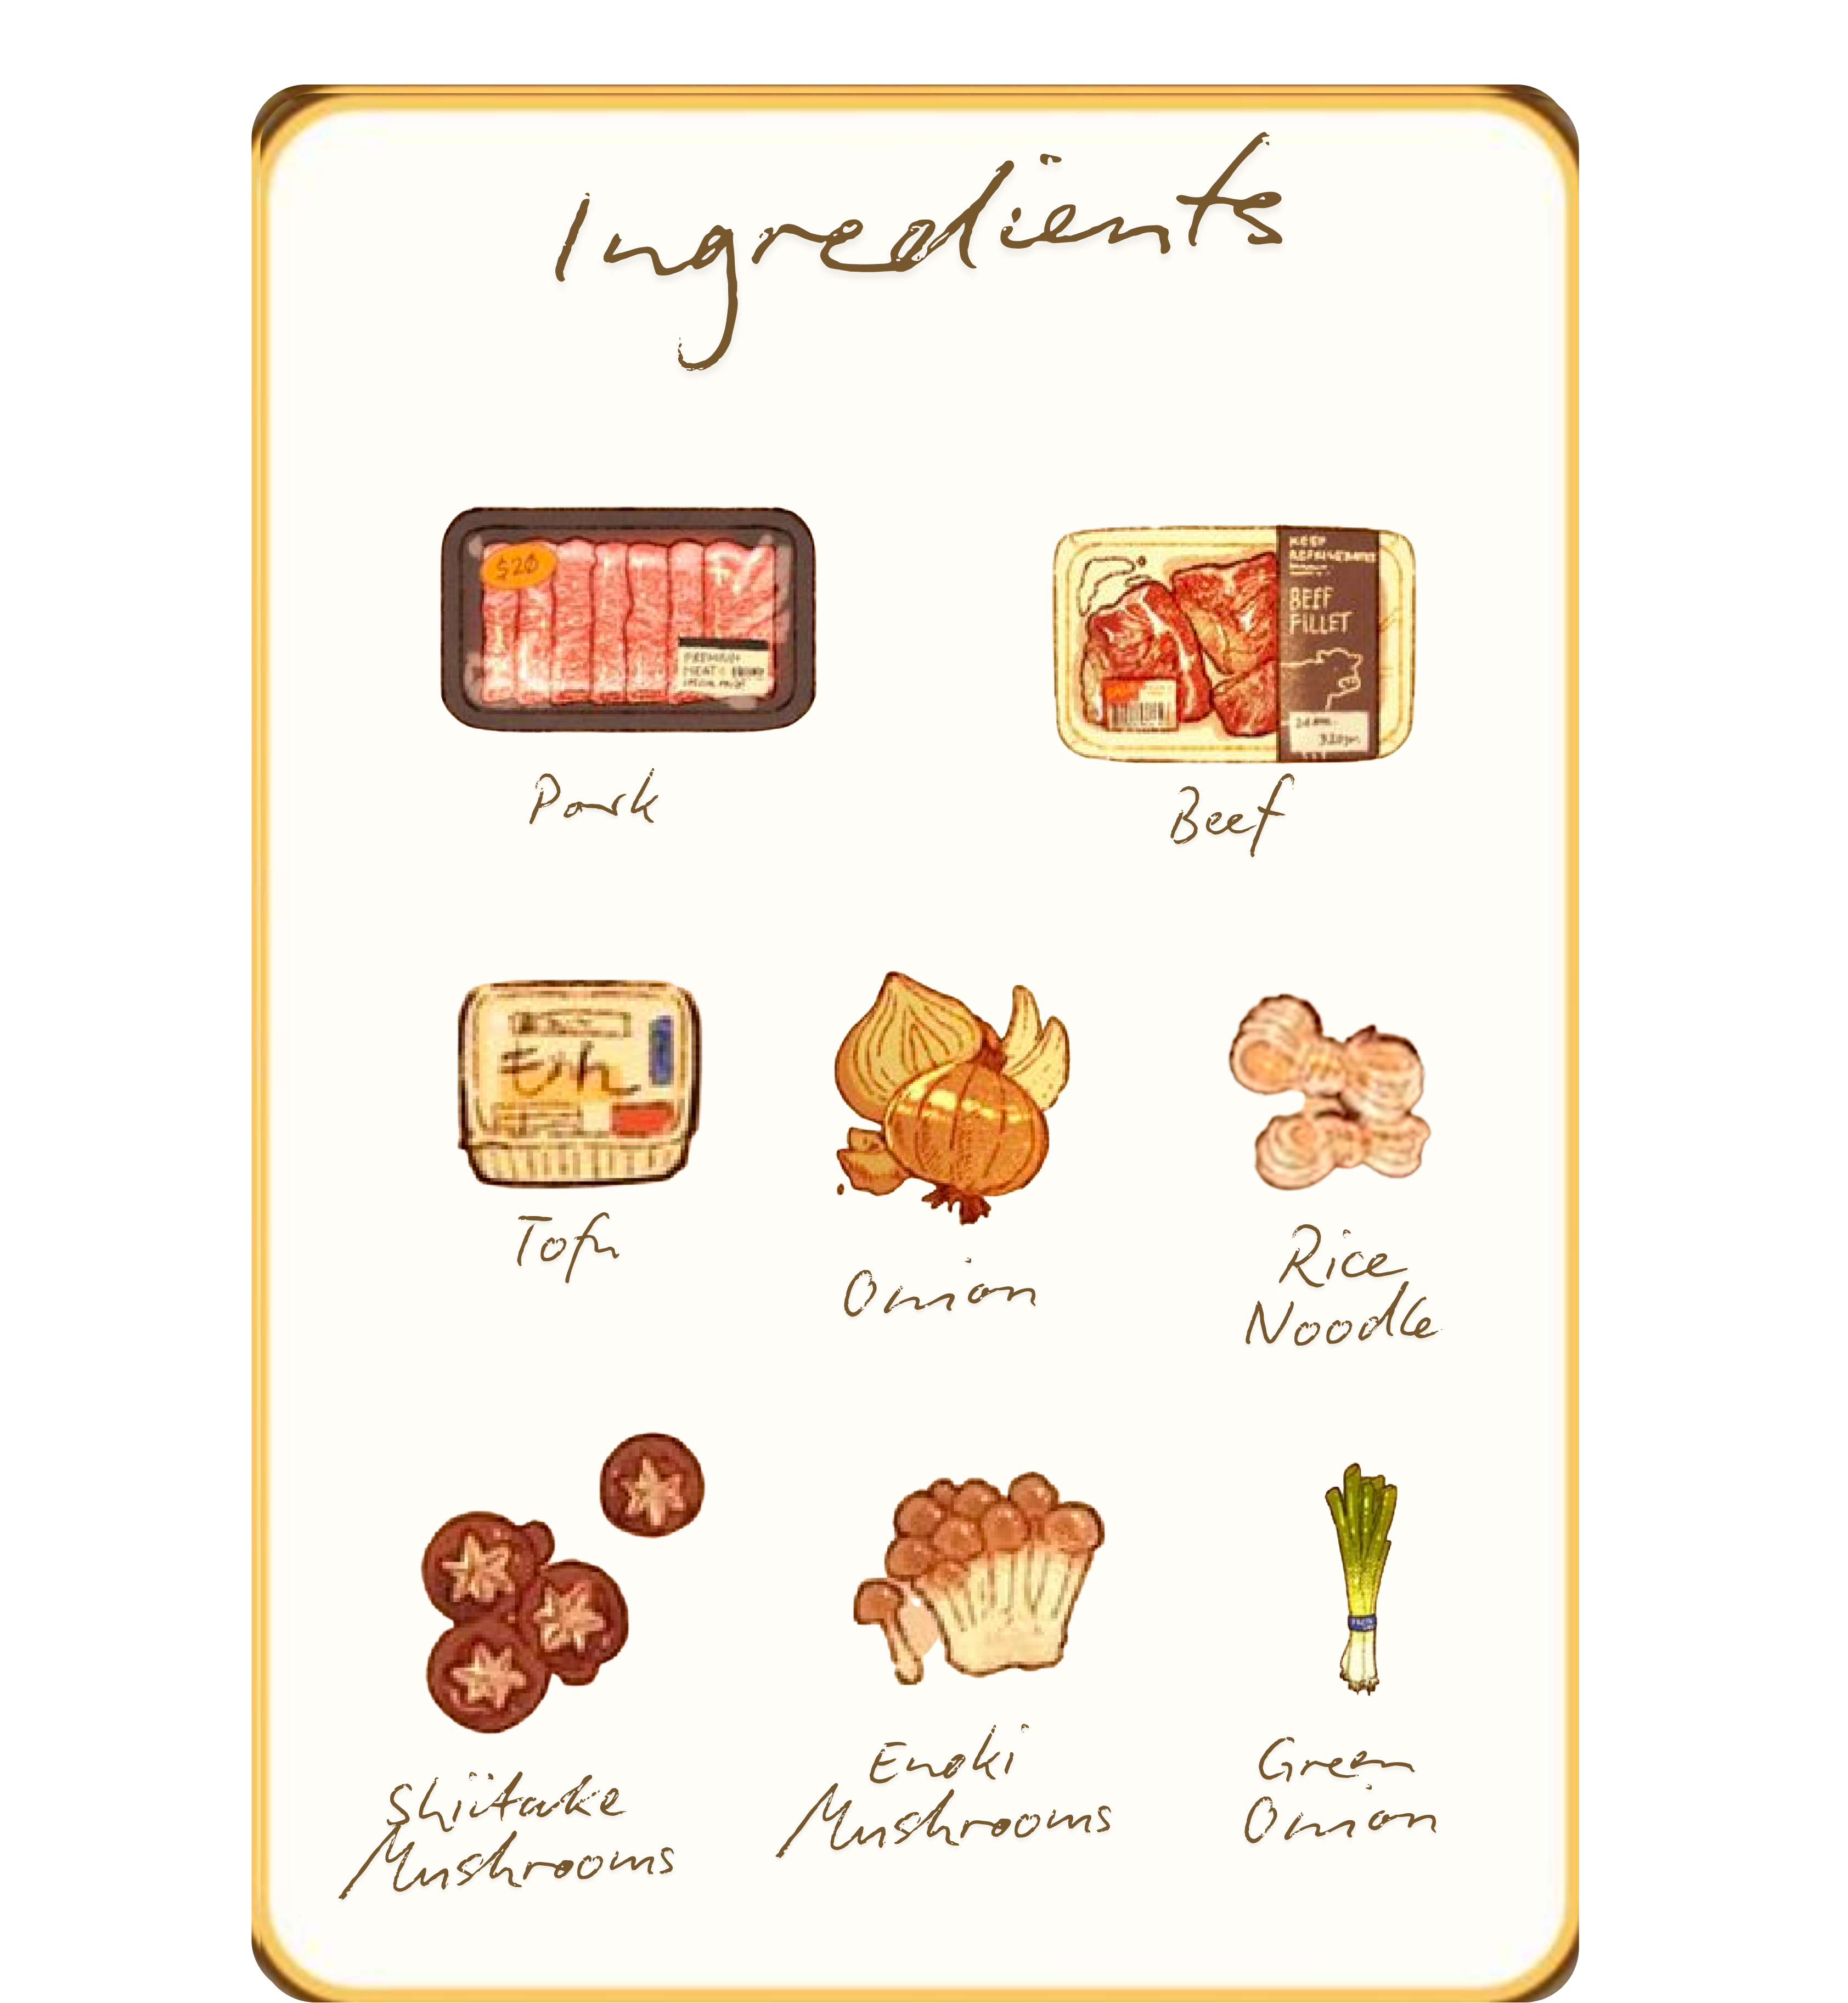 Ingredients
$20
PREMIUM
MEAT
SPECIAL PRICE
KEEP
REFRIGERATED
BEEF
FILLET
320gm
Pork
Beef
もめん
Tofu
Onion
Rice
Noodle
Shiitake
Mushrooms
Enoki
Mushrooms
Green
Onion